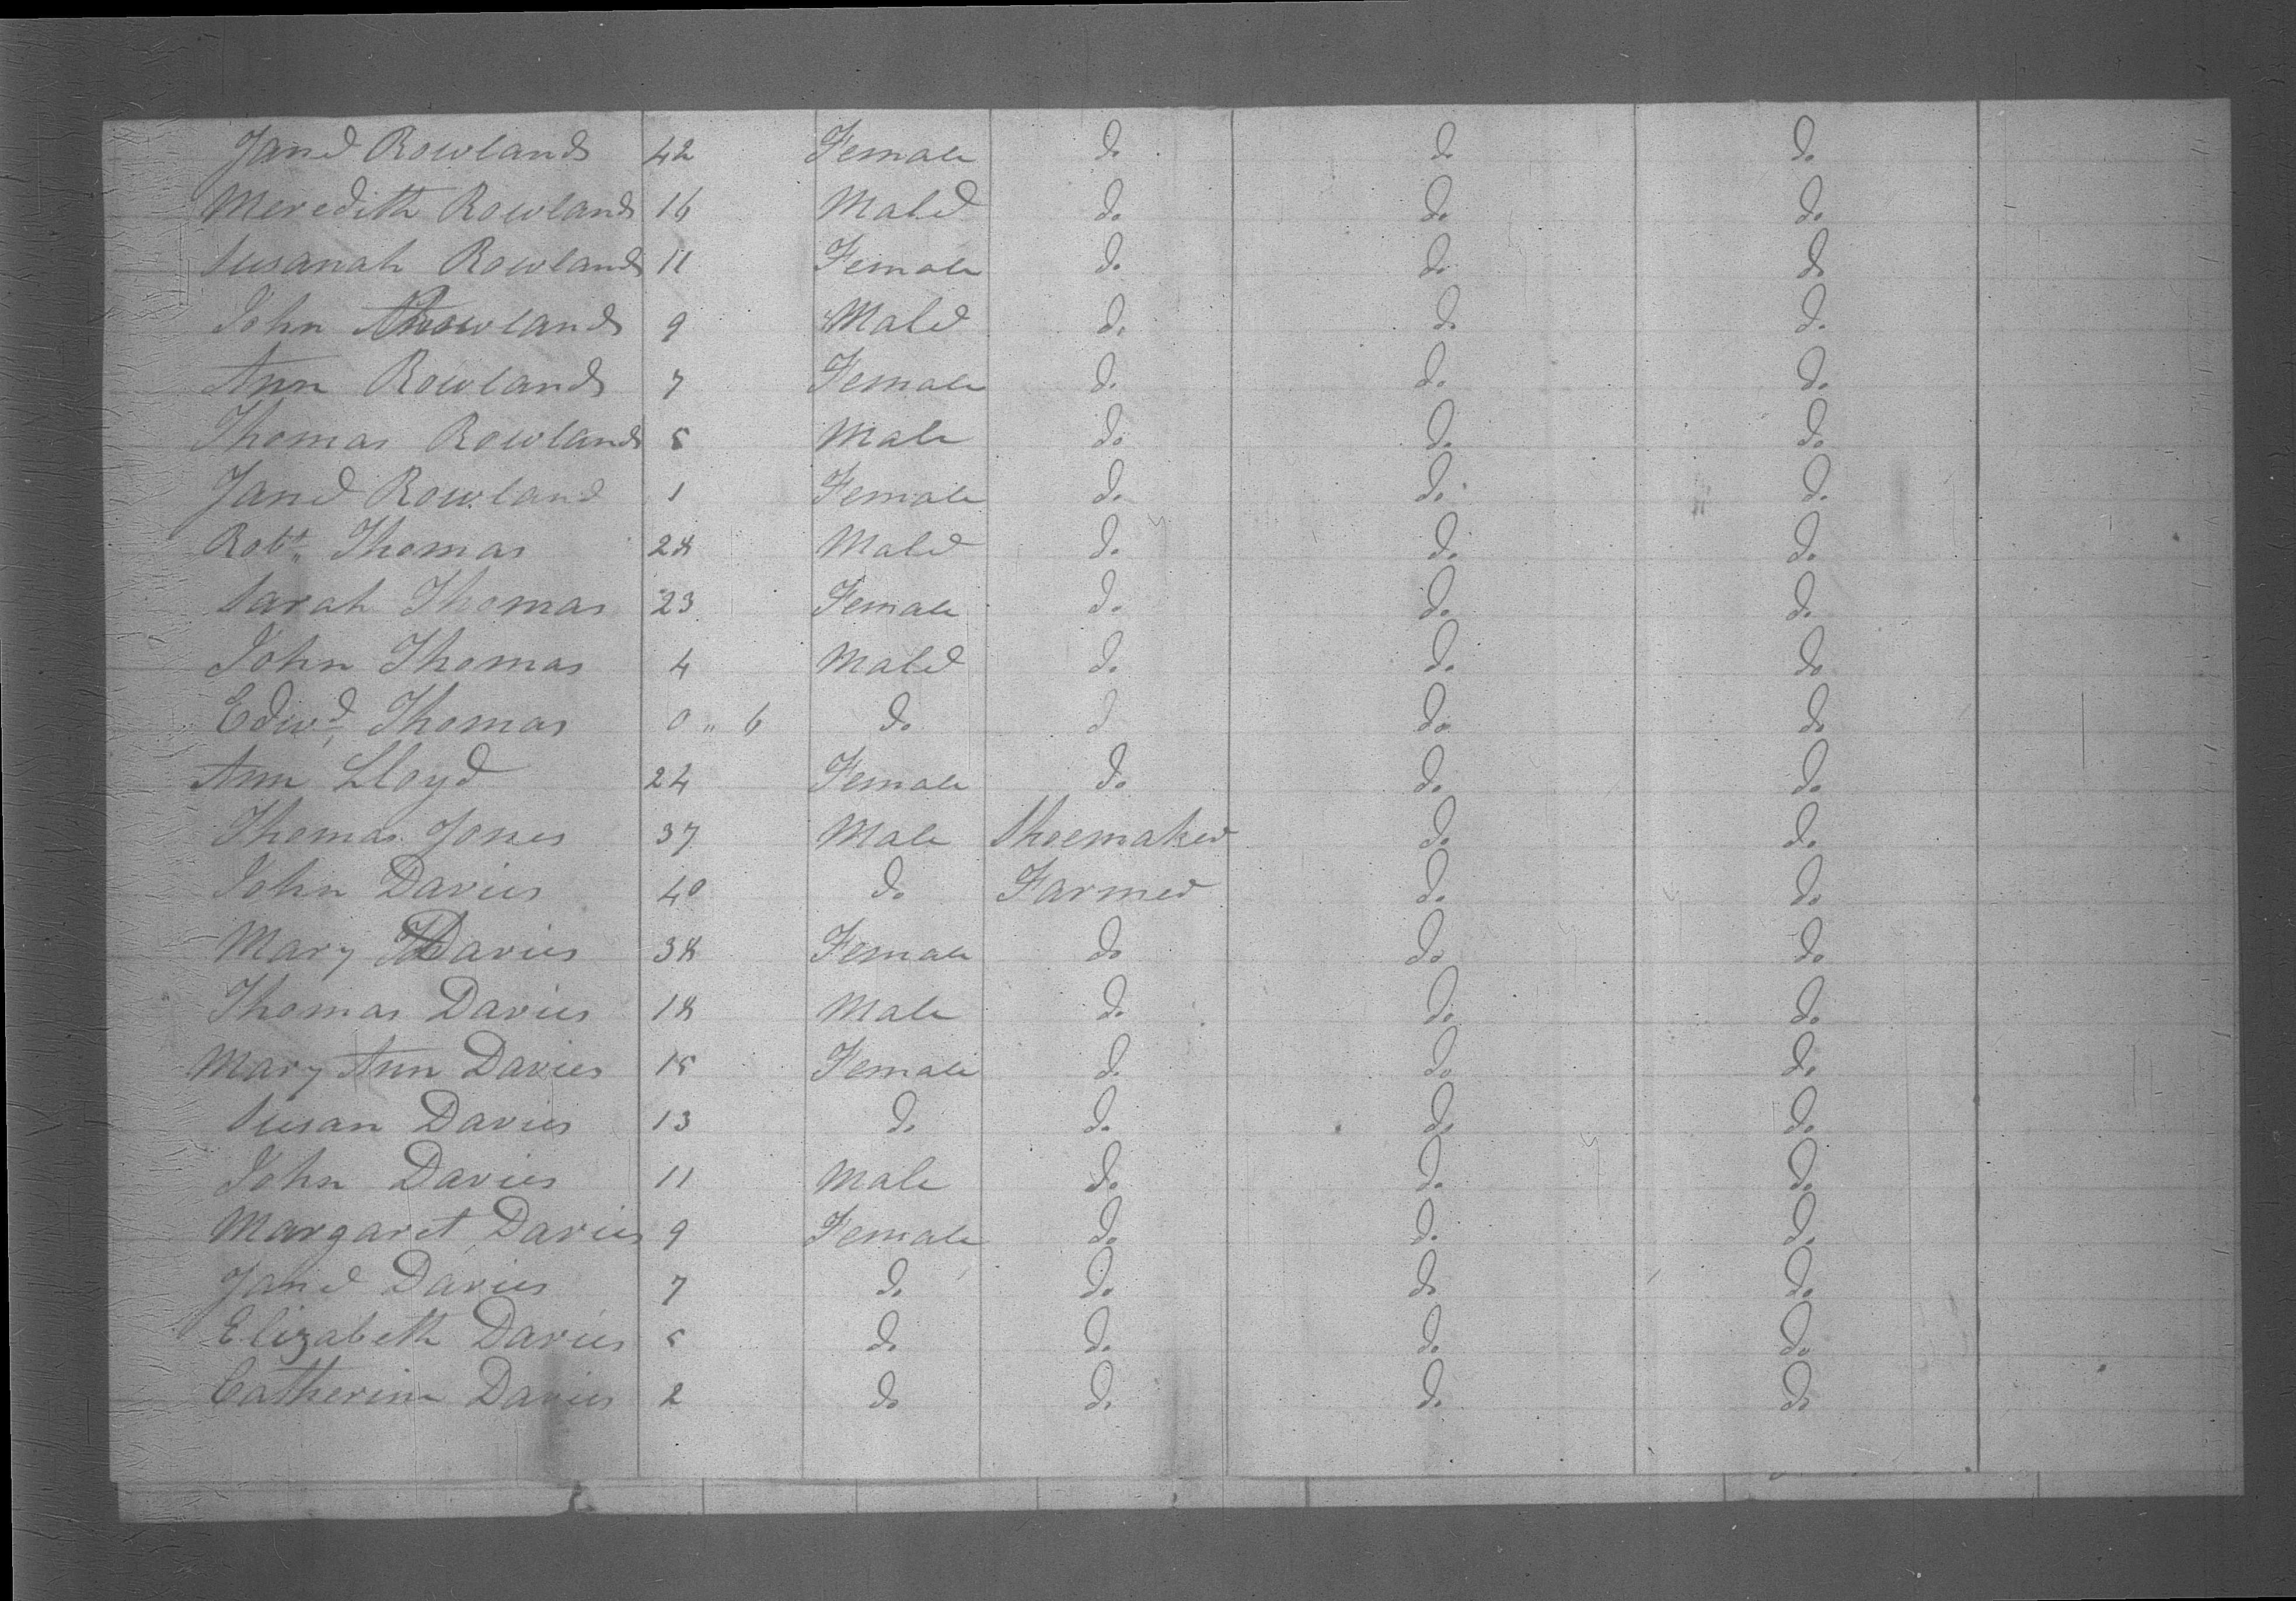 Jane Rowlands 42 Female do do do
Meredith Rowlands 16 Male do do do
Susanah Rowlands 11 Female do do do
John Rowlands 9 Male do do do
Ann Rowlands 7 Female do do do
Thomas Rowlands 5 Male do do do
Jane Rowland 1 Female do do do
Robt. Thomas 28 Male do do do
Sarah Thomas 23 Female do do do
John Thomas 4 Male do do do
Edwd. Thomas 0 " 6 do d do do
Ann Lloyd 24 Female do do do
Thomas Jones 37 Male Shoemaker do do
John Davies 40 do Farmer do do
Mary Davies 38 Female do do do
Thomas Davies 18 Male do do do
Mary Ann Davies 15 Female do do do
Susan Davies 13 do do do do
John Davies 11 Male do do do
Margaret Davies 9 Female do do do
Jane Davies 7 do do do do
Elizabeth Davies 5 do do do do
Catherine Davies 2 do do do do